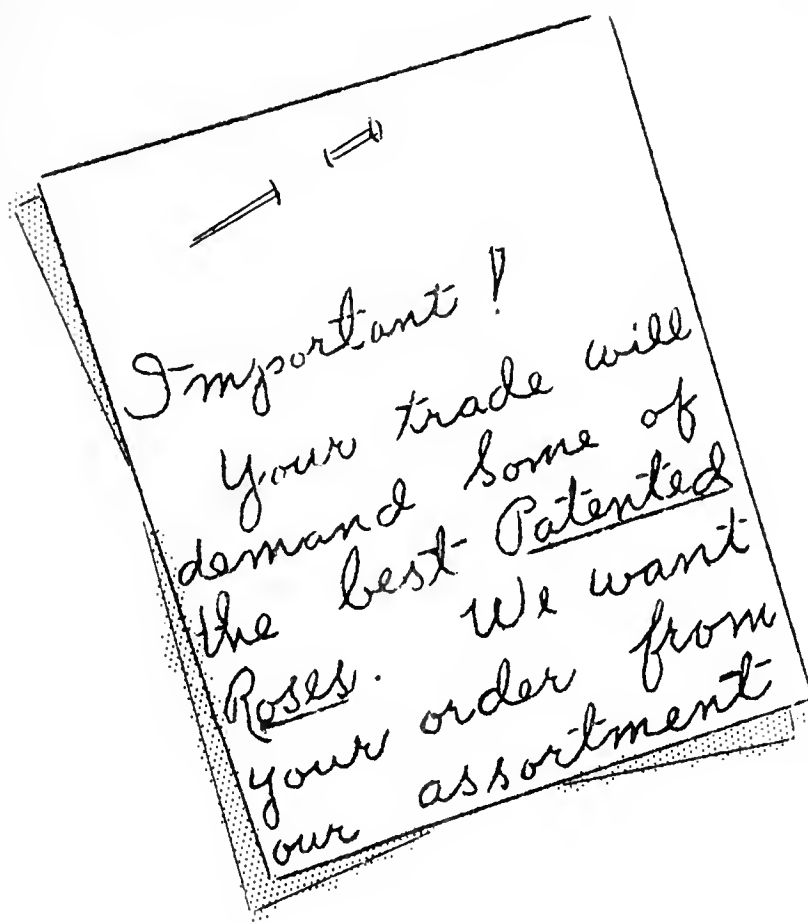 Important!
Your trade will
demand some of
the best Patented
Roses. We want
your order from
our assortment